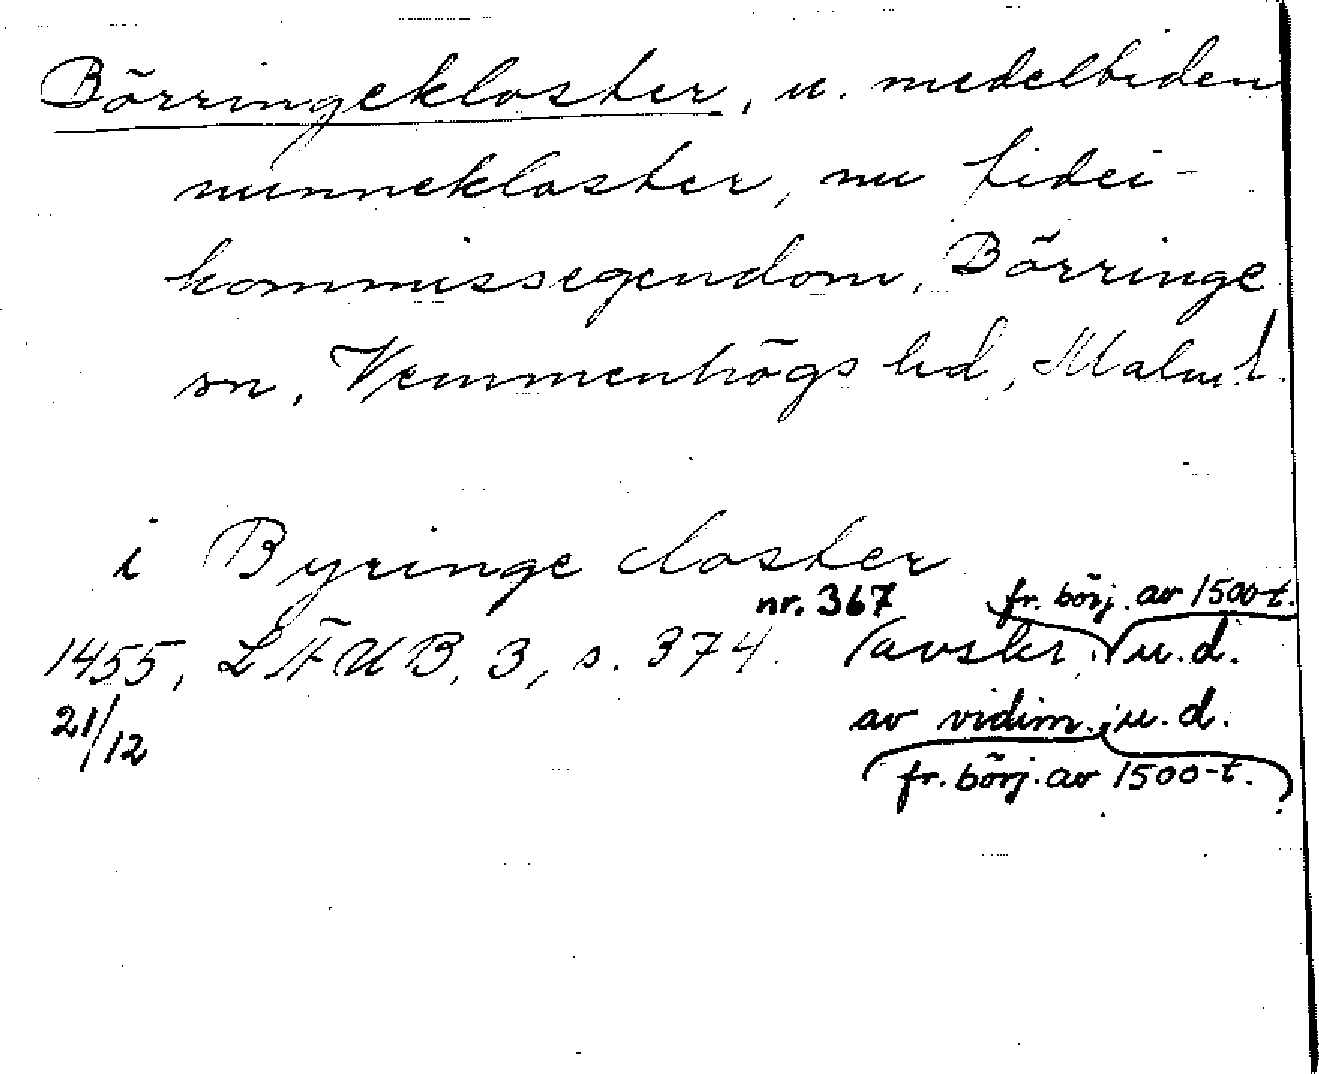 Börringekloster, u. medeltiden
nunnekloster, nu fidei-
kommissegendom, Börringe
sn, Vemmenhögs hd, Malm. l.
i Byringe closter
nr. 367 fr. börj. av 1500-t.
1455, LÄUB, 3, s. 374. (avskr. u.d.
21/12 av vidim. u.d.
fr. börj. av 1500-t.)